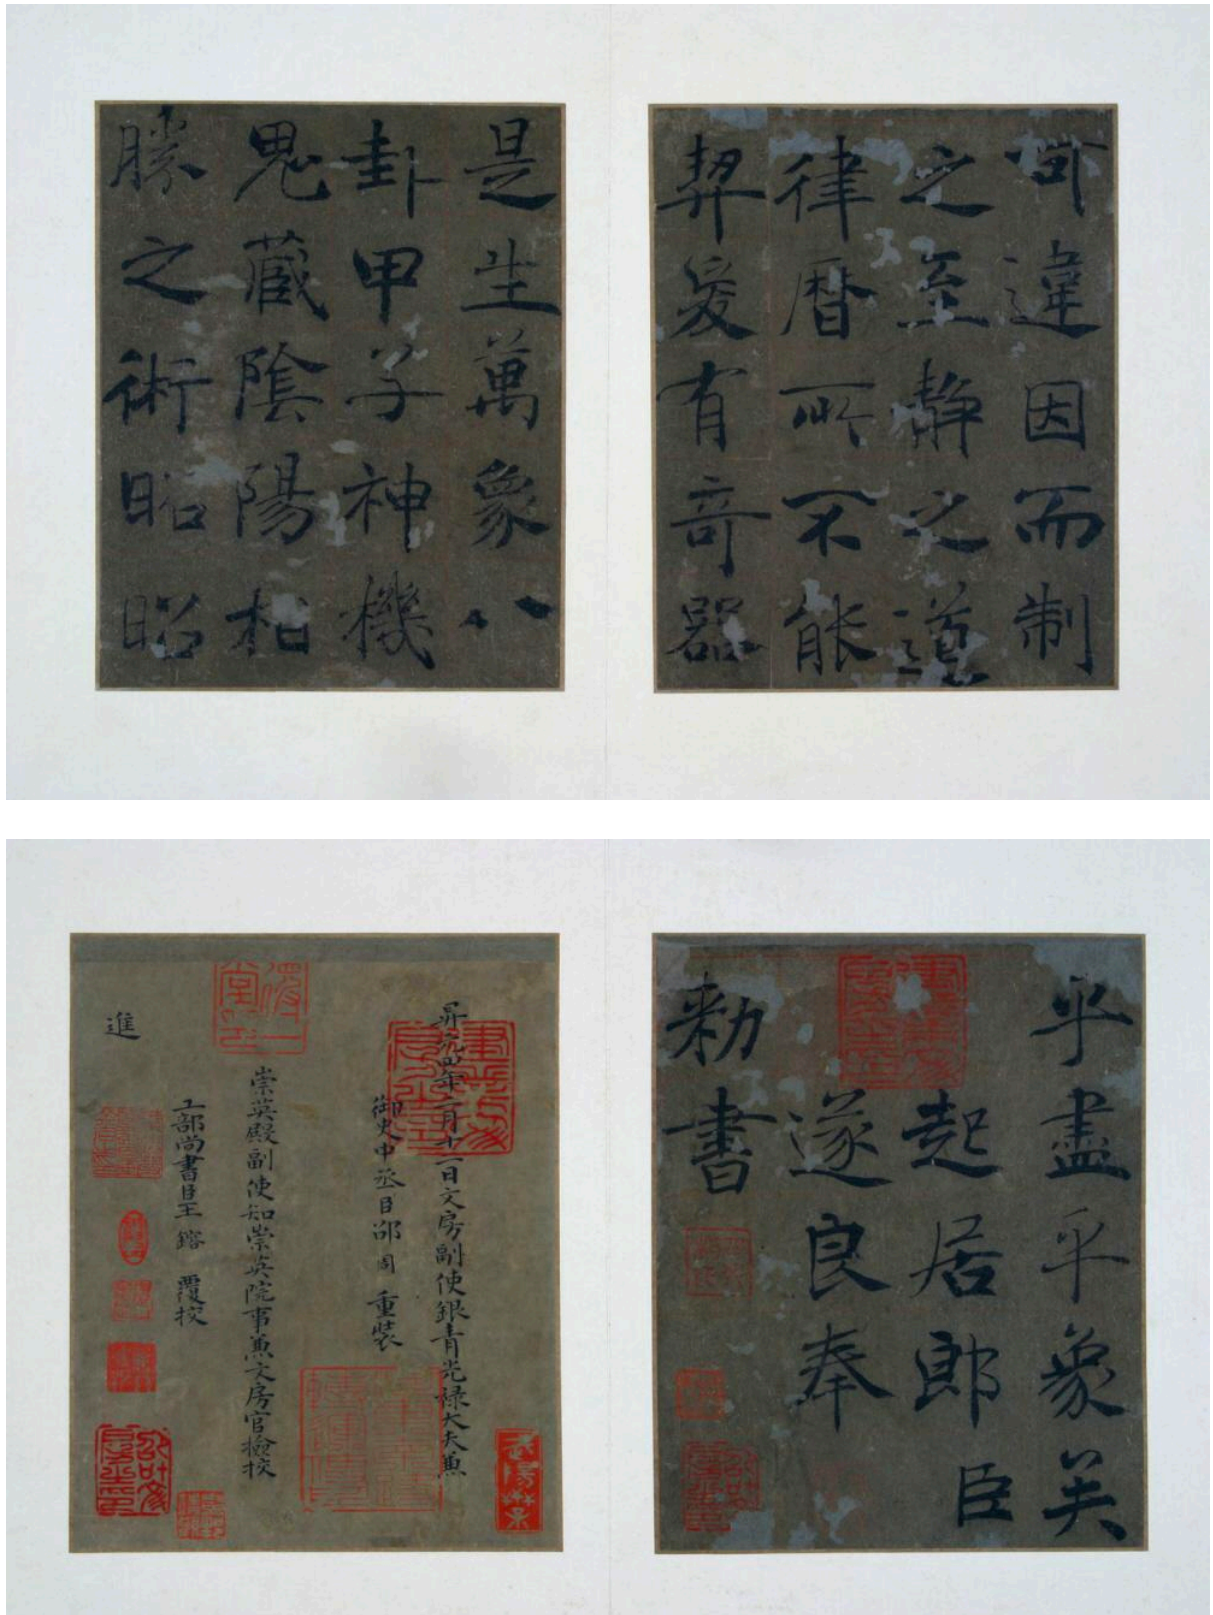 可違因而制
之至靜之道
律暦所不能
契爰有奇器
是生萬象八
卦甲子神機
鬼藏陰陽相
勝之術昭昭
乎盡乎象矣
起居郎臣
遂良奉
勑書
建業文房之印
昇元四年二月十日文房副使銀青光祿大夫兼
御史中丞臣邵周重裝
崇英殿副使知崇英院事兼文房官檢挍
工部尚書臣王鎔覆挍
進
建業文房之印